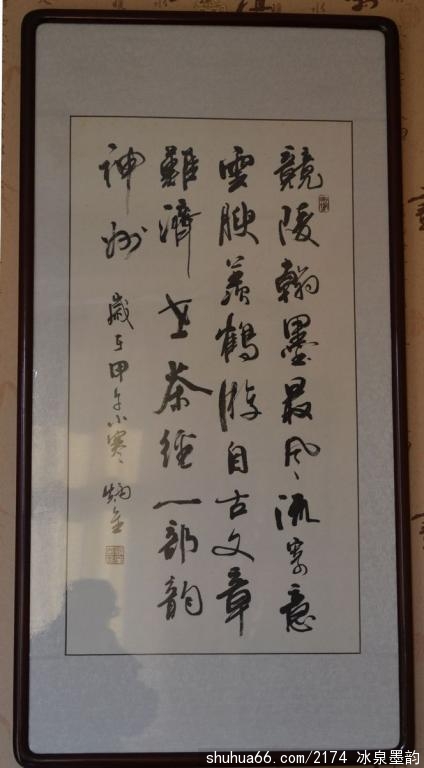 競陵翰墨最风流寄意
雲腴羨鶴游自古文章
難濟世茶經一部韵
神州
歲在甲午小寒
shuhua66.com/2174 冰泉墨韵